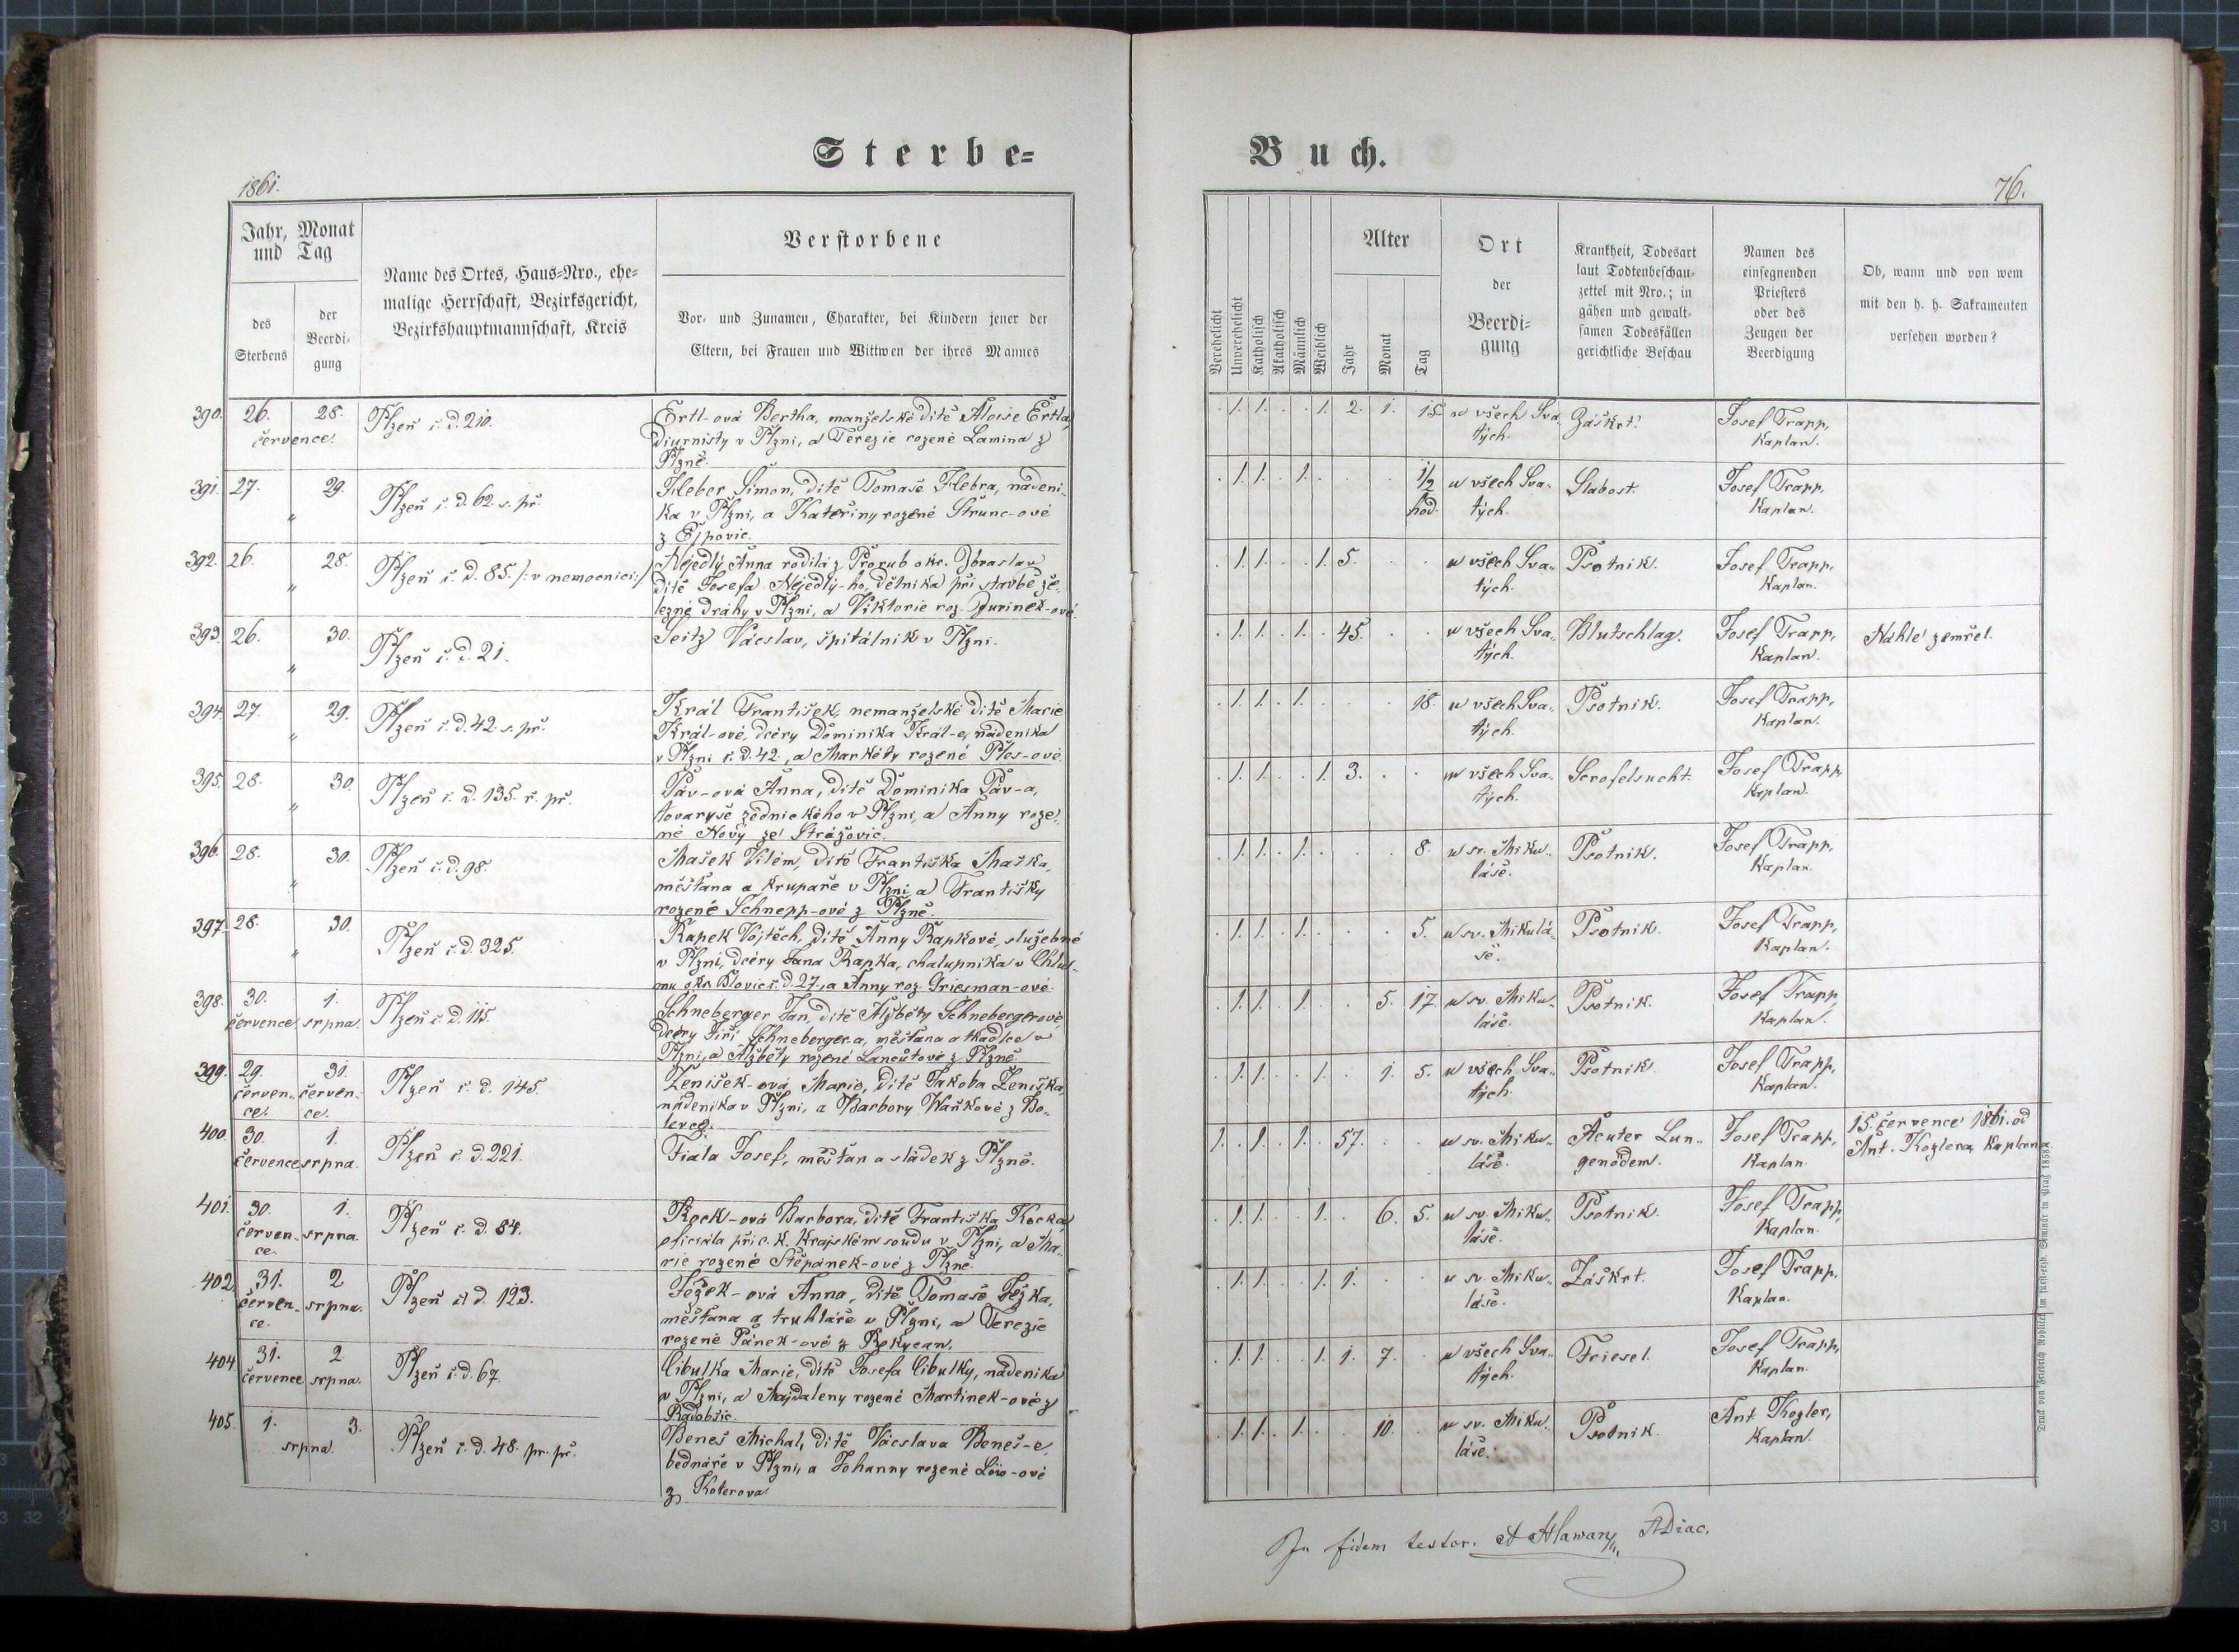 Sterbe=
Buch.
1861.
76.
Jahr, Monat
und Tag
des
Sterbens
der
Beerdi-
gung
Name des Ortes, Haus=Nro., ehe=
malige Herrschaft, Bezirksgericht,
Bezirkshauptmannschaft, Kreis
Verstorbene
Vor= und Zunamen, Charakter, bei Kindern jener der
Eltern, bei Frauen und Wittwen der ihres Mannes
Verehelicht
Unverehelicht
Katholisch
Akatholisch
Männlich
Weiblich
Alter
Jahr
Monat
Tag
Ort
der
Beerdi=
gung
Krankheit, Todesart
laut Todtenbeschau-
zettel mit Nro.; in
gähen und gewalt-
samen Todesfällen
gerichtliche Beschau
Namen des
einsegnenden
Priesters
oder des
Zeugen der
Beerdigung
Ob, wann und von wem
mit den h. h. Sakramenten
versehen worden?
390. 26. 28. července Plzeň č.d. 210.
Ertl-ová Bertha, manželské dítě Aloise Ertla,
Diurnisty v Plzni, a Terezie rozené Lamina z
Plzně.
. 1. 1. . . 1. 2. 1. 15. u všech Sva
tých.
Záškrt. Josef Trapp,
Kaplan.
391. 27. " 29. Plzeň č.d. 62 s. př.
Šimon, dítě Tomaše nadeni-
ka v Plzni, a Kateřiny rozené Štrunc-ové
z Ejpovic.
. 1. 1. . 1. . . . 1/2
hod.
u všech Sva-
tých.
Slabost. Josef Trapp,
Kaplan.
392. 26. " 28. Plzeň č.d. 85. /: v nemocnici :/
Nejedlý Anna rodilá z okr. Zbraslav
dítě Josefa Nejedlý-ho, dělníka při stavbě že-
lezné dráhy v Plzni, a Viktorie roz.
. 1. 1. . . 1. 5. . . u všech Sva-
tých.
Psotnik. Josef Trapp,
Kaplan.
393. 26. " 30. Plzeň č.d. 21.
Seitz Václav, špitálník v Plzni.
. 1. 1. . 1. . 45. . . u všech Sva-
tých.
Blutschlag. Josef Trapp,
Kaplan.
Náhle zemřel.
394. 27. " 29. Plzeň č.d. 42. s. př.
Král František, nemanželské dítě Marie
Král-ové, dcery Dominika Král-e, nadenika
v Plzni č.d. 42., a Markéty rozené Ples-ové.
. 1. 1. . 1. . . . 18. u všech Sva-
tých.
Psotnik. Josef Trapp,
Kaplan.
395. 28. " 30. Plzeň č.d. 135. ř. př.
Páv-ová Anna, dítě Dominika Páv-a,
tovaryše zednického v Plzni, a Anny roze-
né Nový ze Strážovic.
. 1. 1. . . 1. 3. . . u všech Sva-
tých.
Scrofelsucht. Josef Trapp
Kaplan.
396. 28. " 30. Plzeň č.d. 98.
Mašek Vilém, dítě Františka Maška,
měšťana a krupaře v Plzni, a Františky
rozené Schnepp-ové z Plzně.
. 1. 1. . 1. . . . 8. u sv. Miku-
láše.
Psotnik. Josef Trapp,
Kaplan.
397. 28. " 30. Plzeň č.d. 325.
Rapek Vojtěch, dítě Anny Rapkové, služebné
v Plzni, dcery Jana Rapka, chalupníka v
mu okr. Blovic č.d. 27., a Anny roz. Griesman-ové.
. 1. 1. . 1. . . . 5. u sv. Mikulá-
še.
Psotnik. Josef Trapp,
Kaplan.
398. 30. července 1. srpna. Plzeň č.d. 115.
Schneberger Jan, dítě Alžběty Schnebergerové,
dcery Jiří Schneberger-a, měšťana a tkadlce v
Plzni, a Alžběty rozené z Plzně.
. 1. 1. . 1. . . 5. 17. u sv. Miku-
láše.
Psotnik. Josef Trapp,
Kaplan.
399. 29. červen-
ce. 31. červen-
ce. Plzeň č.d. 145.
Ženíšek-ová Marie, dítě Jakoba Ženíška,
nádeníka v Plzni, a Barbory Waňkové z Bo-
levce.
. 1. 1. . . 1. . 1. 5. u všech Sva-
tých.
Psotnik. Josef Trapp,
Kaplan.
400. 30. července 1. srpna. Plzeň č.d. 221.
Fiala Josef, měšťan a sládek z Plzně.
1. . 1. . 1. . 57. . . u sv. Miku-
láše.
Acuter Lun-
genödem.
Josef Trapp,
Kaplan.
15. července 1861. od
Ant. Kozlera, Kaplana
401. 30. červen-
ce. 1. srpna. Plzeň č.d. 84.
Kock-ová Barbora, dítě Františka Kocka,
oficiála při c.k. Krajském soudu v Plzni, a Ma-
rie rozené Štěpánek-ové z Plzně.
. 1. 1. . . 1. . 6. 5. u sv. Miku-
láše.
Psotnik. Josef Trapp,
Kaplan.
402. 31. červen-
ce. 2. srpna. Plzeň č.d. 123.
Ježek-ová Anna, dítě Tomaše Ježka,
měšťana a truhláře v Plzni, a Terezie
rozené Pánek-ové z Rokycan.
. 1. 1. . . 1. 1. . . u sv. Miku-
láše.
Záškrt. Josef Trapp,
Kaplan.
404. 31. července 2. srpna. Plzeň č.d. 67.
Cibulka Marie, dítě Josefa Cibulky, nádeníka
v Plzni, a Majdaleny rozené Martinek-ové z
Radobžic.
. 1. 1. . . 1. 1. 7. . u všech Sva-
tých.
Friesel. Josef Trapp,
Kaplan.
405. 1. srpna. 3. Plzeň č.d. 48. pr. př.
Beneš Michal, dítě Václava Beneš-e
bednáře v Plzni, a Johanny rozené Löw-ové
z Koterova.
. 1. 1. . 1. . . 10. . u sv. Miku-
láše.
Psotnik. Ant. Kozler,
Kaplan.
In fidem testor. A Hlawan ADiac.